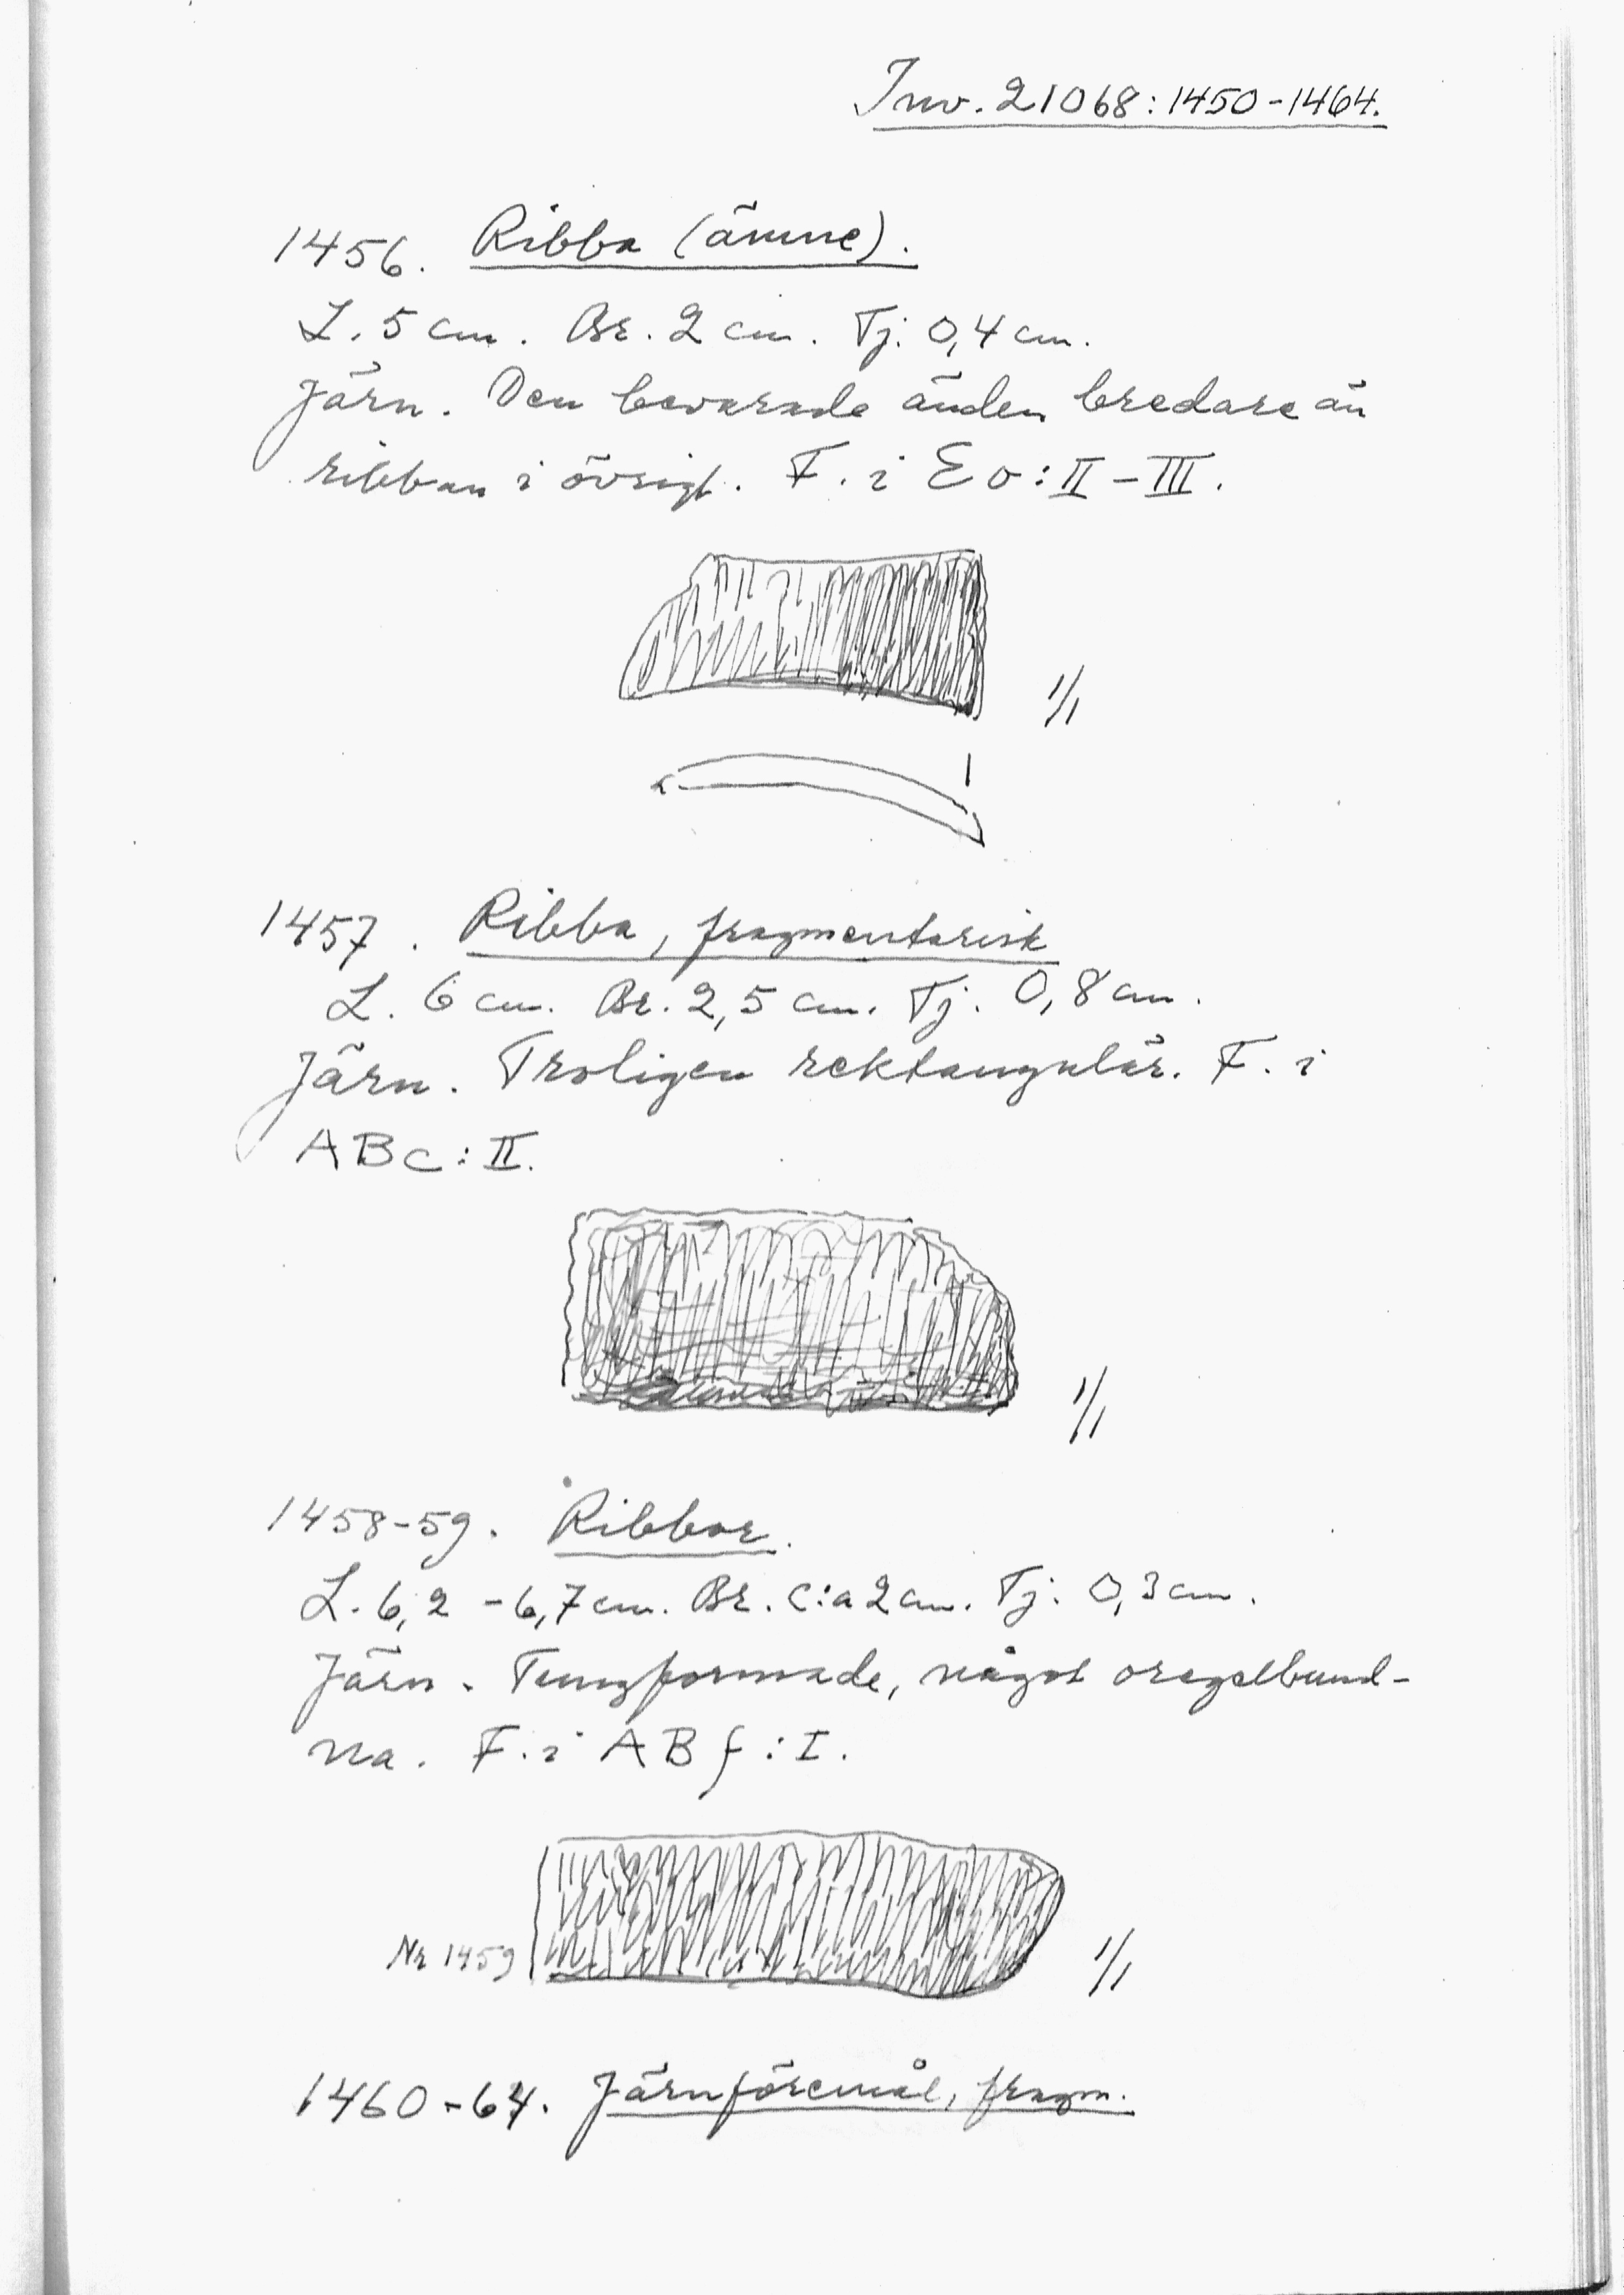 Inv. 21068:1450-1464.
1456. Ribba (ämne).
L. 5 cm. Br. 2 cm. Tj. 0,4 cm.
Järn. Den bevarade änden bredare än
ribban i övrigt. F. i Eo:II-III.
1/1
1457. Ribba, fragmentarisk
L. 6 cm. Br. 2,5 cm. Tj. 0,8 cm.
Järn. Troligen rektangulär. F. i
ABc:II.
1/1
1458-59. Ribbor.
L. 6,2-6,7 cm. Br. c:a 2 cm. Tj. 0,3 cm.
Järn. Tungformade, något oregelbund-
na. F. i ABf:I.
Nr 1459
1/1
1460-64. Järnföremål, fragm.